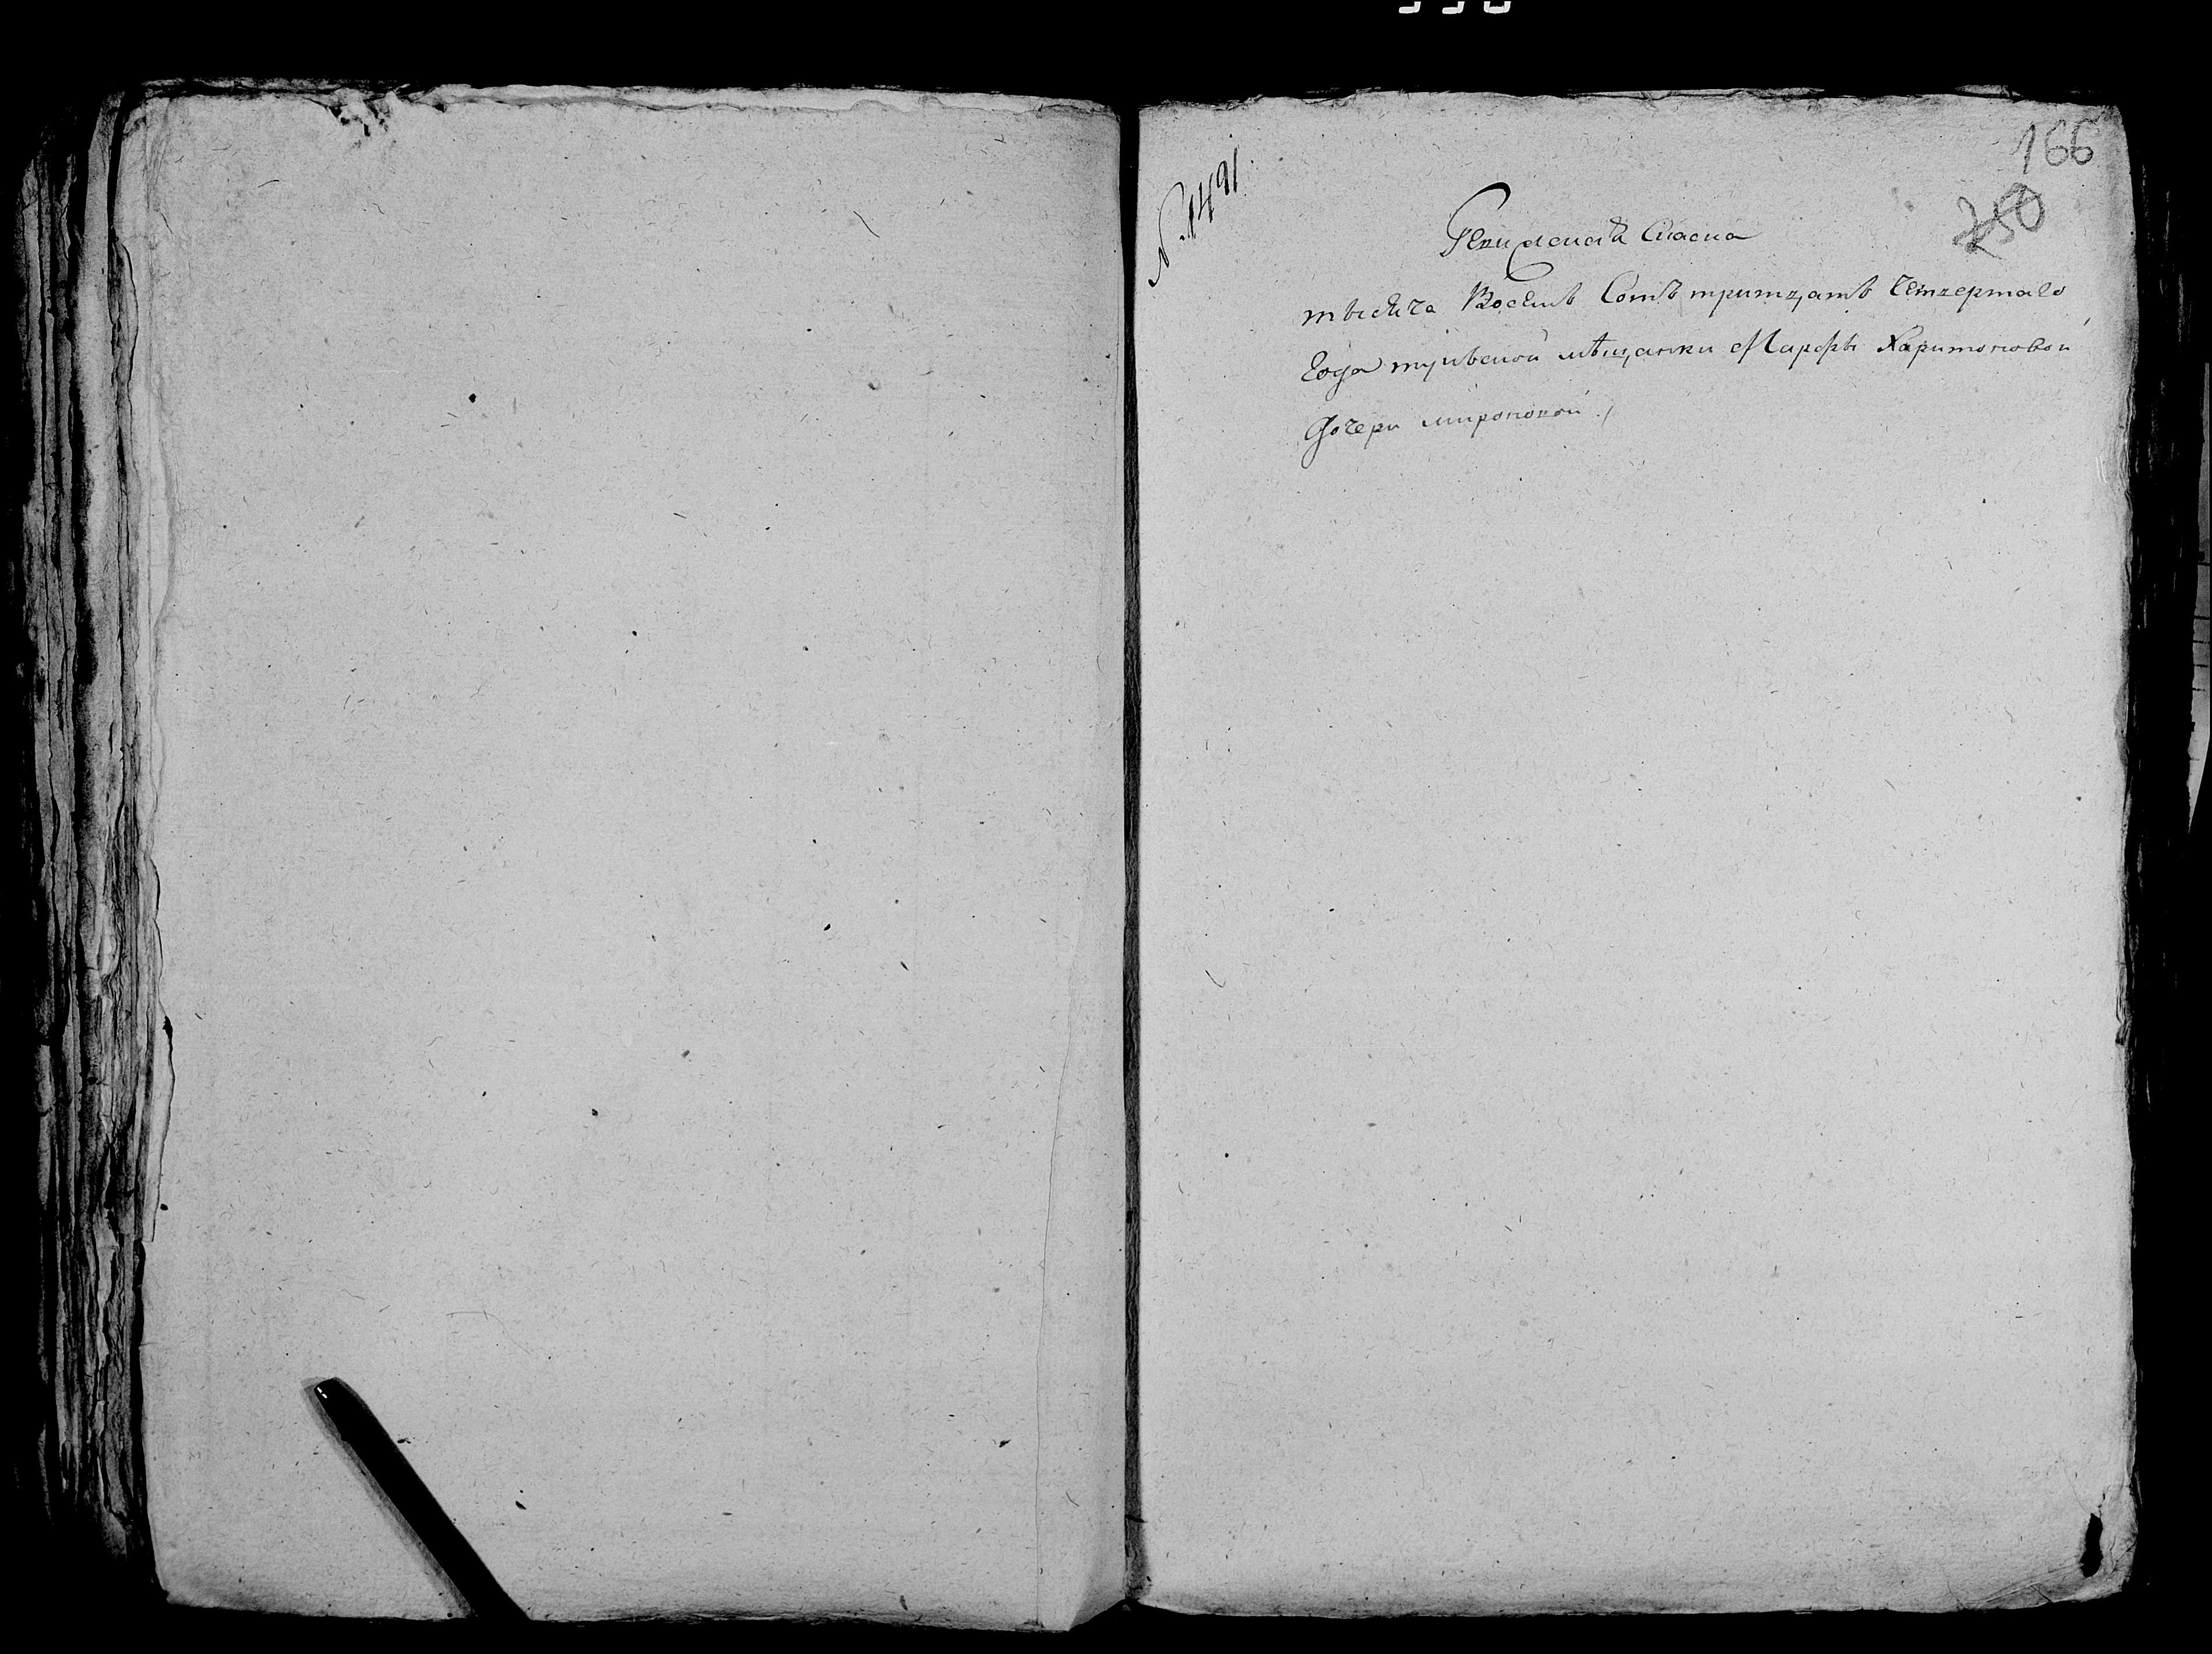 166
250
N. 1491.
Ревизская Сказка
тысеча Восемь Сотъ тритцать Четвертаго
Года тульской мѣщанки Марфы Харитоновой
Дочери мироновой